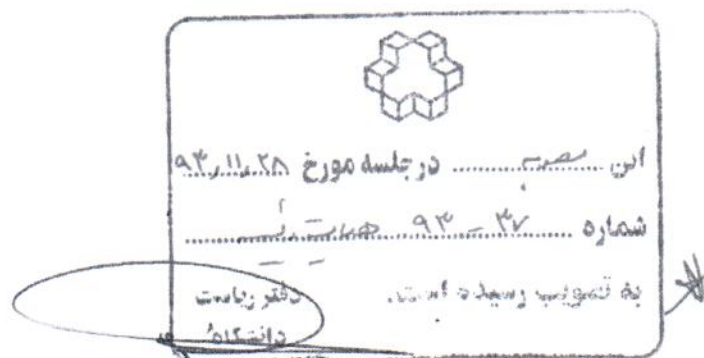 این مصوبه در جلسه مورخ ۹۳,۱۱,۲۸
شماره ۳۷ – ۹۳ هیات رئیسه
به تصویب رسیده است.
دفتر ریاست
دانشگاه